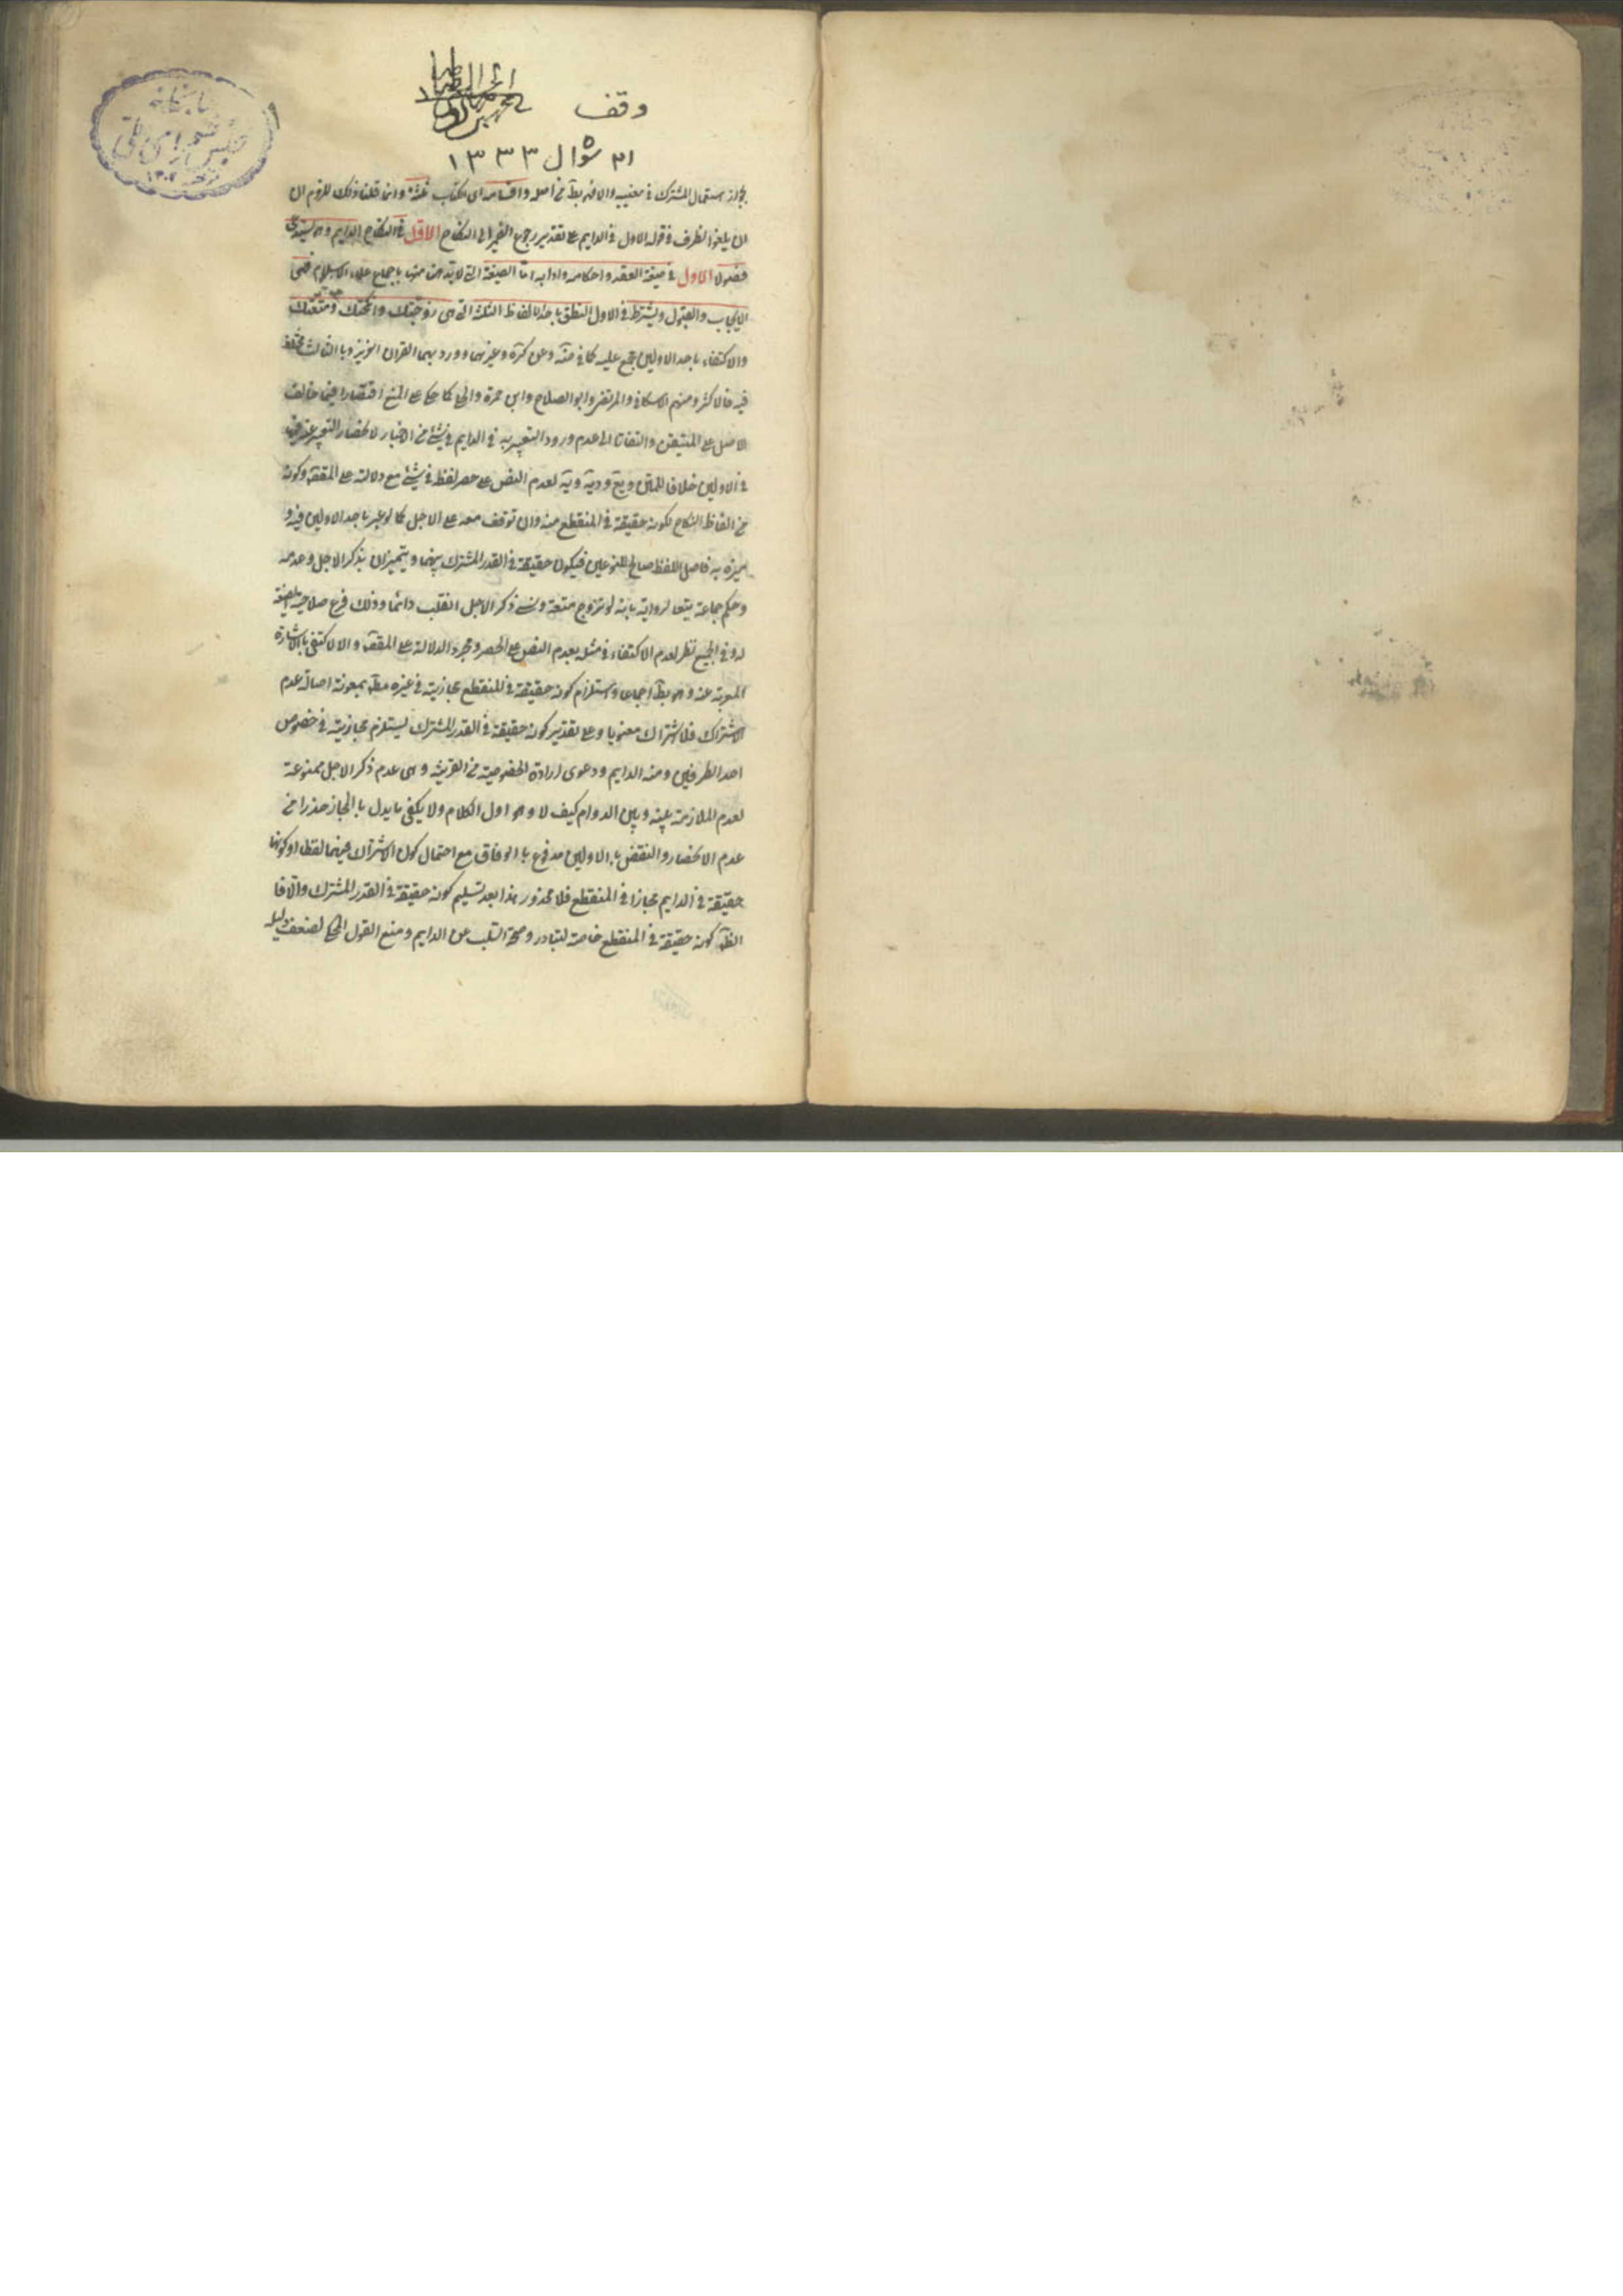 وقف
٣١ شوال ١٣٣٣
كتابخانه
مجلس شورای ملی
بجواز استعمال المشترك في معنييه والا فهو بط من اصله واقسامه اى الكتاب ثلثة وانما قلنا ذلك للزوم ان
ان يلغو الظرف في قوله الاول في الدايم على تقدير رجوع الضمير الى النكاح الاول في النكاح الدايم وهو يستدعى
فصولا الاول في صيغة العقد واحكامه وادابه اما الصيغة التي لابد من منها باجماع علماء الاسلام فهى
الايجاب والقبول ويشترط في الاول النطق باحد الالفاظ الثلثة التي هي زوجتك وانكحتك ومتعتك
والاكتفاء باحد الاولين مجمع عليه كما في ضه وعن كره وغيرهما وورد بهما القران العزيز وبالثالث مختلف
فيه فالاكثر ومنهم الاسكافي والمرتضى وابو الصلاح وابن حمزة والحلي كما حكى على المنع اقتصارا فيما خالف
الاصل على المتيقن والتفاتا الى عدم ورود التعبير به في الدايم في شئ من الاخبار لانحصار التعبير عنه فيه
في الاولين خلافا للمتن ويع ود وية لعدم النص على حصر لفظ في شئ مع دلالته على المقصود وكونه
من الفاظ النكاح لكونه حقيقة في المنقطع منه وان توقف معه على الاجل كما لو عبر باحد الاولين فيه و
ميزه به فاصل اللفظ صالح للنوعين فيكون حقيقة في القدر المشترك بينهما ويتميزان بذكر الاجل وعدمه
وحكم جماعة تبعا لرواية بانه لو تزوج متعة ونسى ذكر الاجل انقلب دائما وذلك فرع صلاحية الصيغة
له وفي الجميع نظر لعدم الاكتفاء في مثله بعدم النص على الحصر ومجرد الدلالة على المقصود والا لاكتفى بالاشارة
المعربة عنه وهو بط اجماعا واستلزام كونه حقيقة في المنقطع مجازيته في غيره مط بمعونة اصالة عدم
الاشتراك فلا اشتراك معنويا وعلى تقدير كونه حقيقة في القدر المشترك يستلزم مجازيته في خصوص
احد الطرفين ومنه الدايم ودعوى ارادة الخصوصية من القرينة وهى عدم ذكر الاجل ممنوعة
لعدم الملازمة بينه وبين الدوام كيف لا وهو اول الكلام ولا يكفى ما يدل بالمجاز حذرا من
عدم الانحصار والنقض بالاولين مدفوع بالوفاق مع احتمال كون الاشتراك فيهما لفظا او كونها
حقيقة في الدايم مجازا في المنقطع فلا محذور هذا بعد تسليم كونه حقيقة في القدر المشترك والا فا
الظ كونه حقيقة في المنقطع خاصة لتبادر وصحة السلب عن الدايم ومنع القول المحكى لضعف دليله